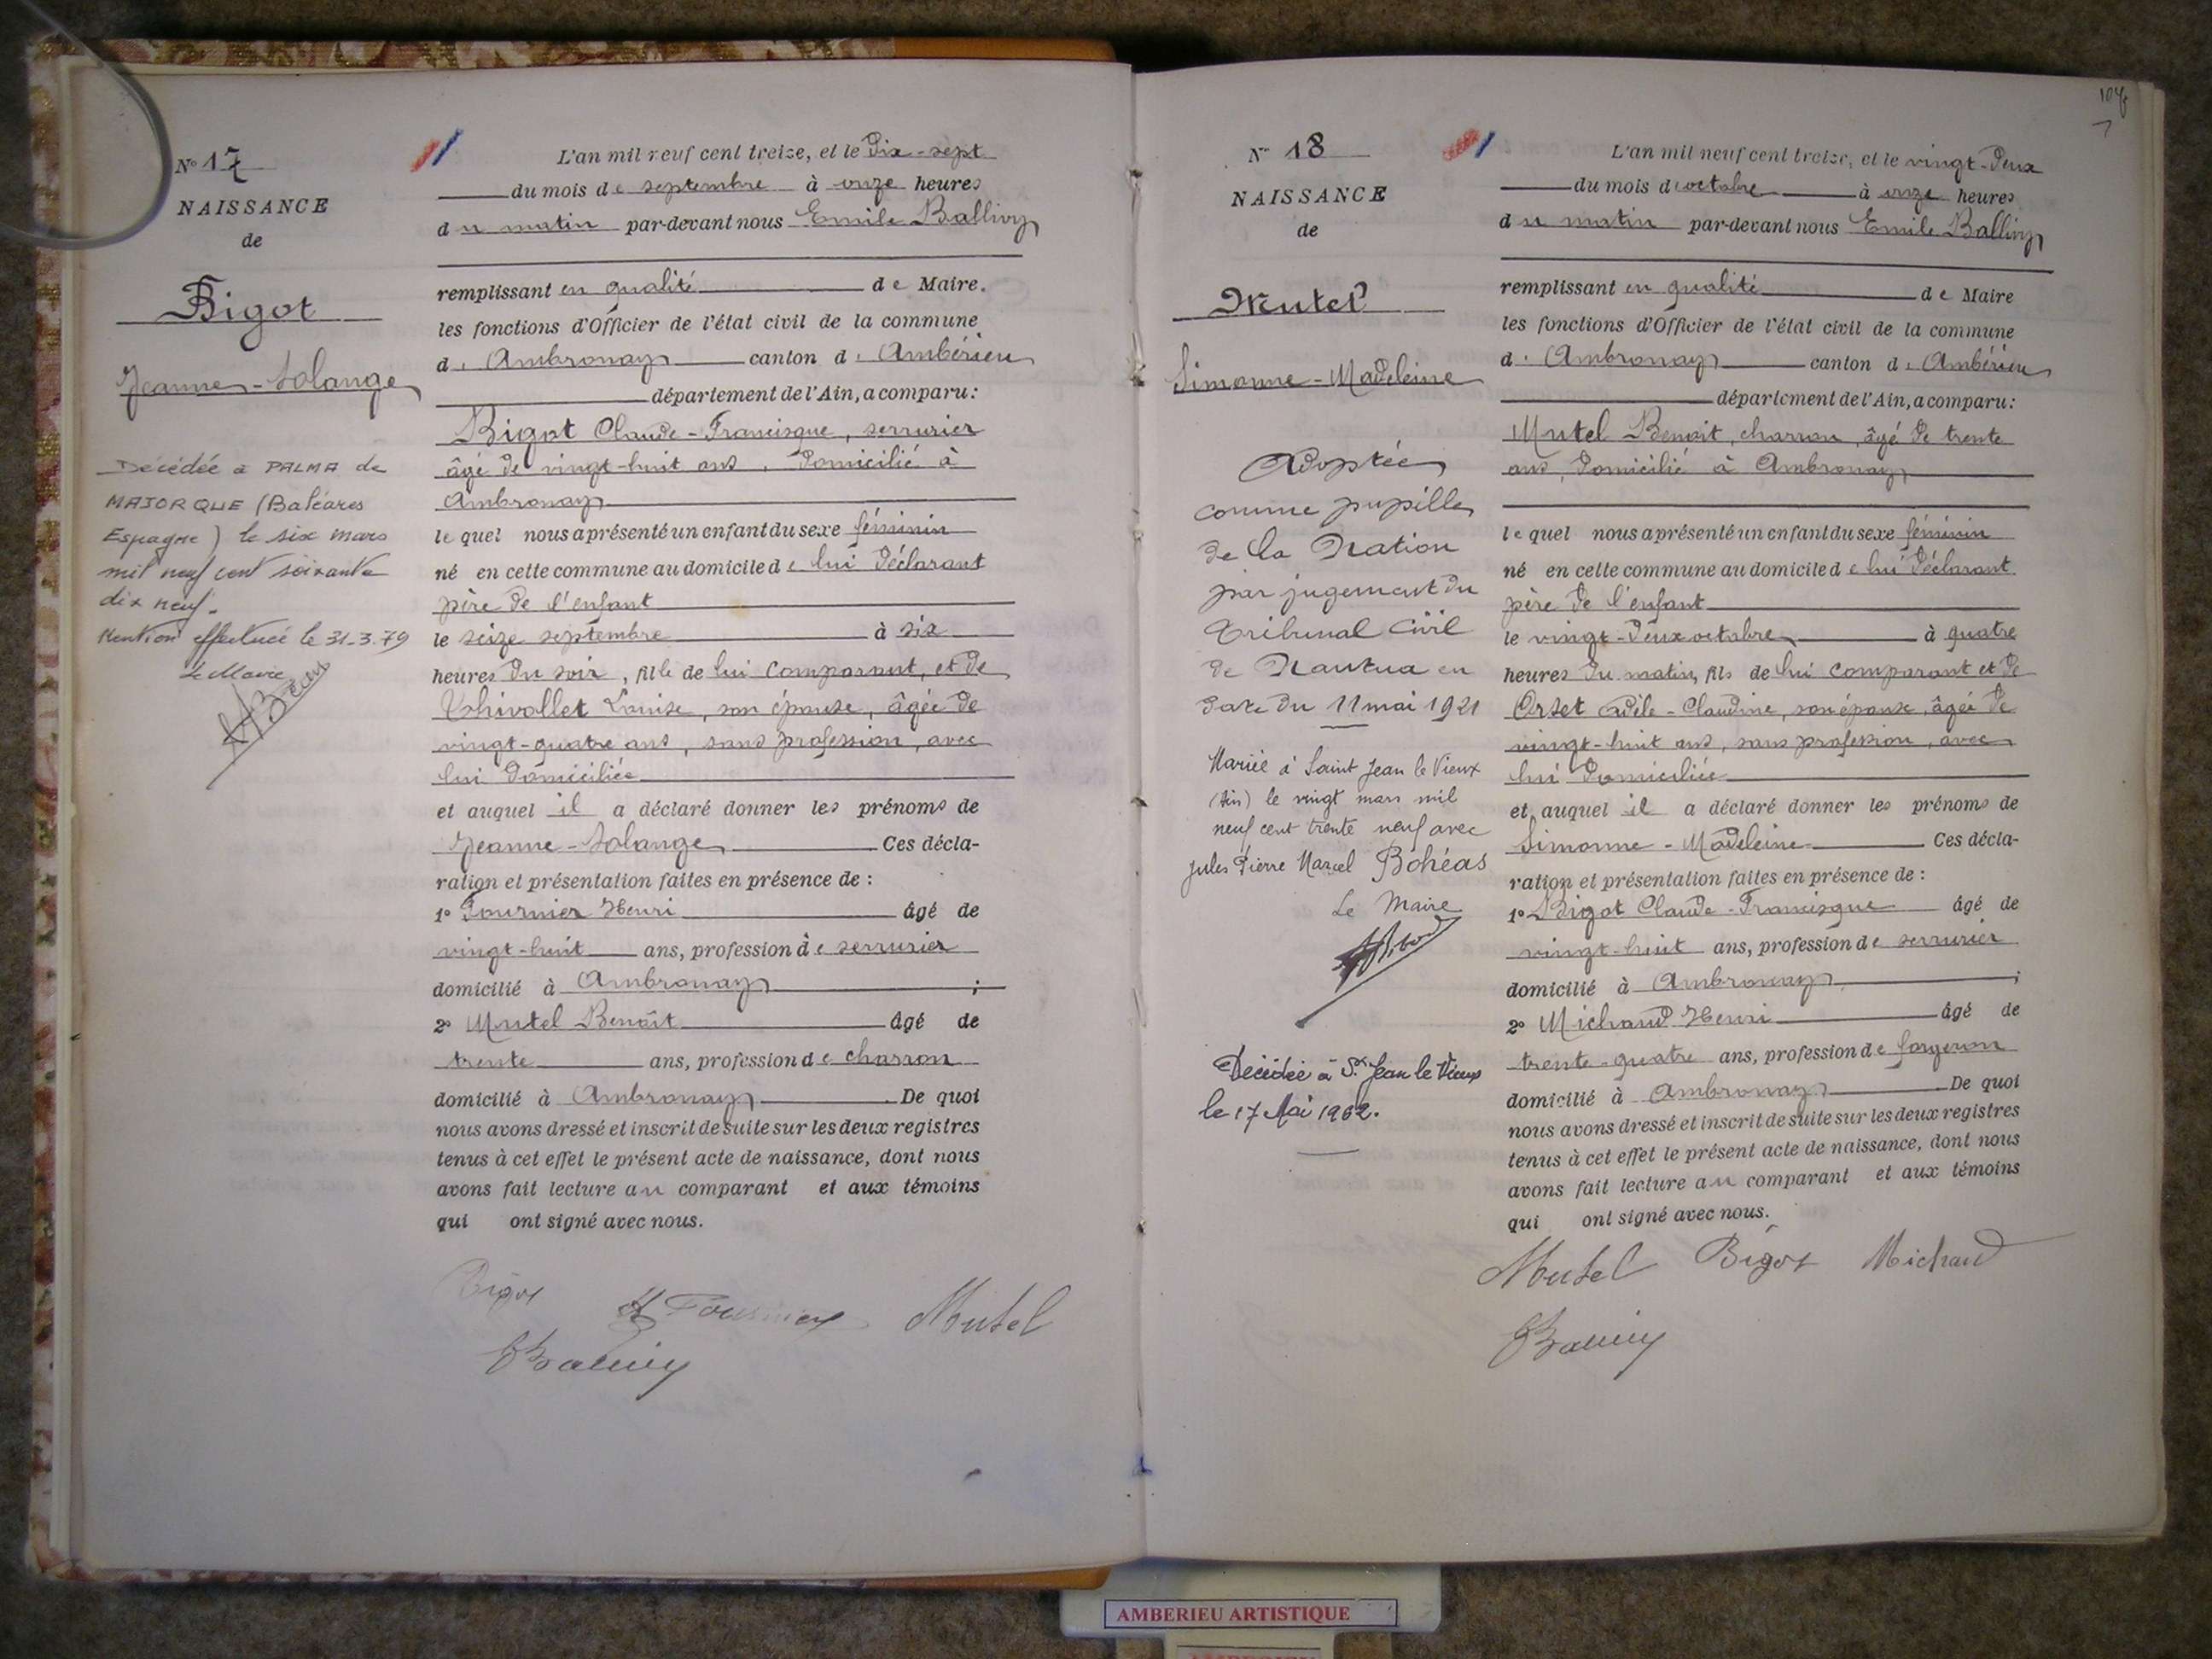 N° 17
NAISSANCE
de
Bigot
Jeanne-Solange
Décédée à PALMA de
MAJORQUE (Baléares
Espagne) le six mars
mil neuf cent soixante
dix neuf.
Mention effectuée le 31.3.79
Le Maire
L'an mil neuf cent treize, et le dix-sept
du mois de septembre à onze heures
du matin par-devant nous Emile Ballivy
remplissant en qualité de Maire.
les fonctions d'Officier de l'état civil de la commune
d. Ambronay canton d. Ambérieu
département de l'Ain, a comparu:
Bigot Claude-Francisque, serrurier
âgé de vingt-huit ans, domicilié à
Ambronay
lequel nous a présenté un enfant du sexe féminin
né en cette commune au domicile de lui déclarant
père de l'enfant
le seize septembre à six
heures du soir, fille de lui comparant, et de
Thivollet Louise, son épouse, âgée de
vingt-quatre ans, sans profession, avec
lui domiciliée
et auquel il a déclaré donner les prénoms de
Jeanne-Solange Ces décla-
ration et présentation faites en présence de :
1° Fournier Henri âgé de
vingt-huit ans, profession de serrurier
domicilié à Ambronay ;
2° Mutel Benoît âgé de
trente ans, profession de charron
domicilié à Ambronay De quoi
nous avons dressé et inscrit de suite sur les deux registres
tenus à cet effet le présent acte de naissance, dont nous
avons fait lecture au comparant et aux témoins
qui ont signé avec nous.
Bigot H Fournier Mutel
EBallivy
N° 18
NAISSANCE
de
Mutel
Simonne-Madeleine
Adoptée
comme pupille
de la Nation
par jugement du
Tribunal Civil
de Nantua en
date du 11 mai 1921
Mariée à Saint Jean le Vieux
(Ain) le vingt mars mil
neuf cent trente neuf avec
Jules Pierre Marcel Bohéas
Le Maire
Décédée à St Jean le Vieux
le 17 Mai 1962.
L'an mil neuf cent treize, et le vingt-deux
du mois d'octobre à onze heures
du matin par-devant nous Emile Ballivy
remplissant en qualité de Maire
les fonctions d'Officier de l'état civil de la commune
d. Ambronay canton d. Ambérieu
département de l'Ain, a comparu:
Mutel Benoit, charron, âgé de trente
ans, domicilié à Ambronay
lequel nous a présenté un enfant du sexe féminin
né en cette commune au domicile de lui déclarant
père de l'enfant
le vingt-deux octobre à quatre
heures du matin, fils de lui comparant et de
Orset Adèle-Claudine, son épouse, âgée de
vingt-huit ans, sans profession, avec
lui domiciliée
et auquel il a déclaré donner les prénoms de
Simonne-Madeleine Ces décla-
ration et présentation faites en présence de :
1° Bigot Claude-Francisque âgé de
vingt-huit ans, profession de serrurier
domicilié à Ambronay ;
2° Michaud Henri âgé de
trente-quatre ans, profession de forgeron
domicilié à Ambronay De quoi
nous avons dressé et inscrit de suite sur les deux registres
tenus à cet effet le présent acte de naissance, dont nous
avons fait lecture au comparant et aux témoins
qui ont signé avec nous.
Mutel Bigot Michaud
EBallivy
AMBERIEU ARTISTIQUE